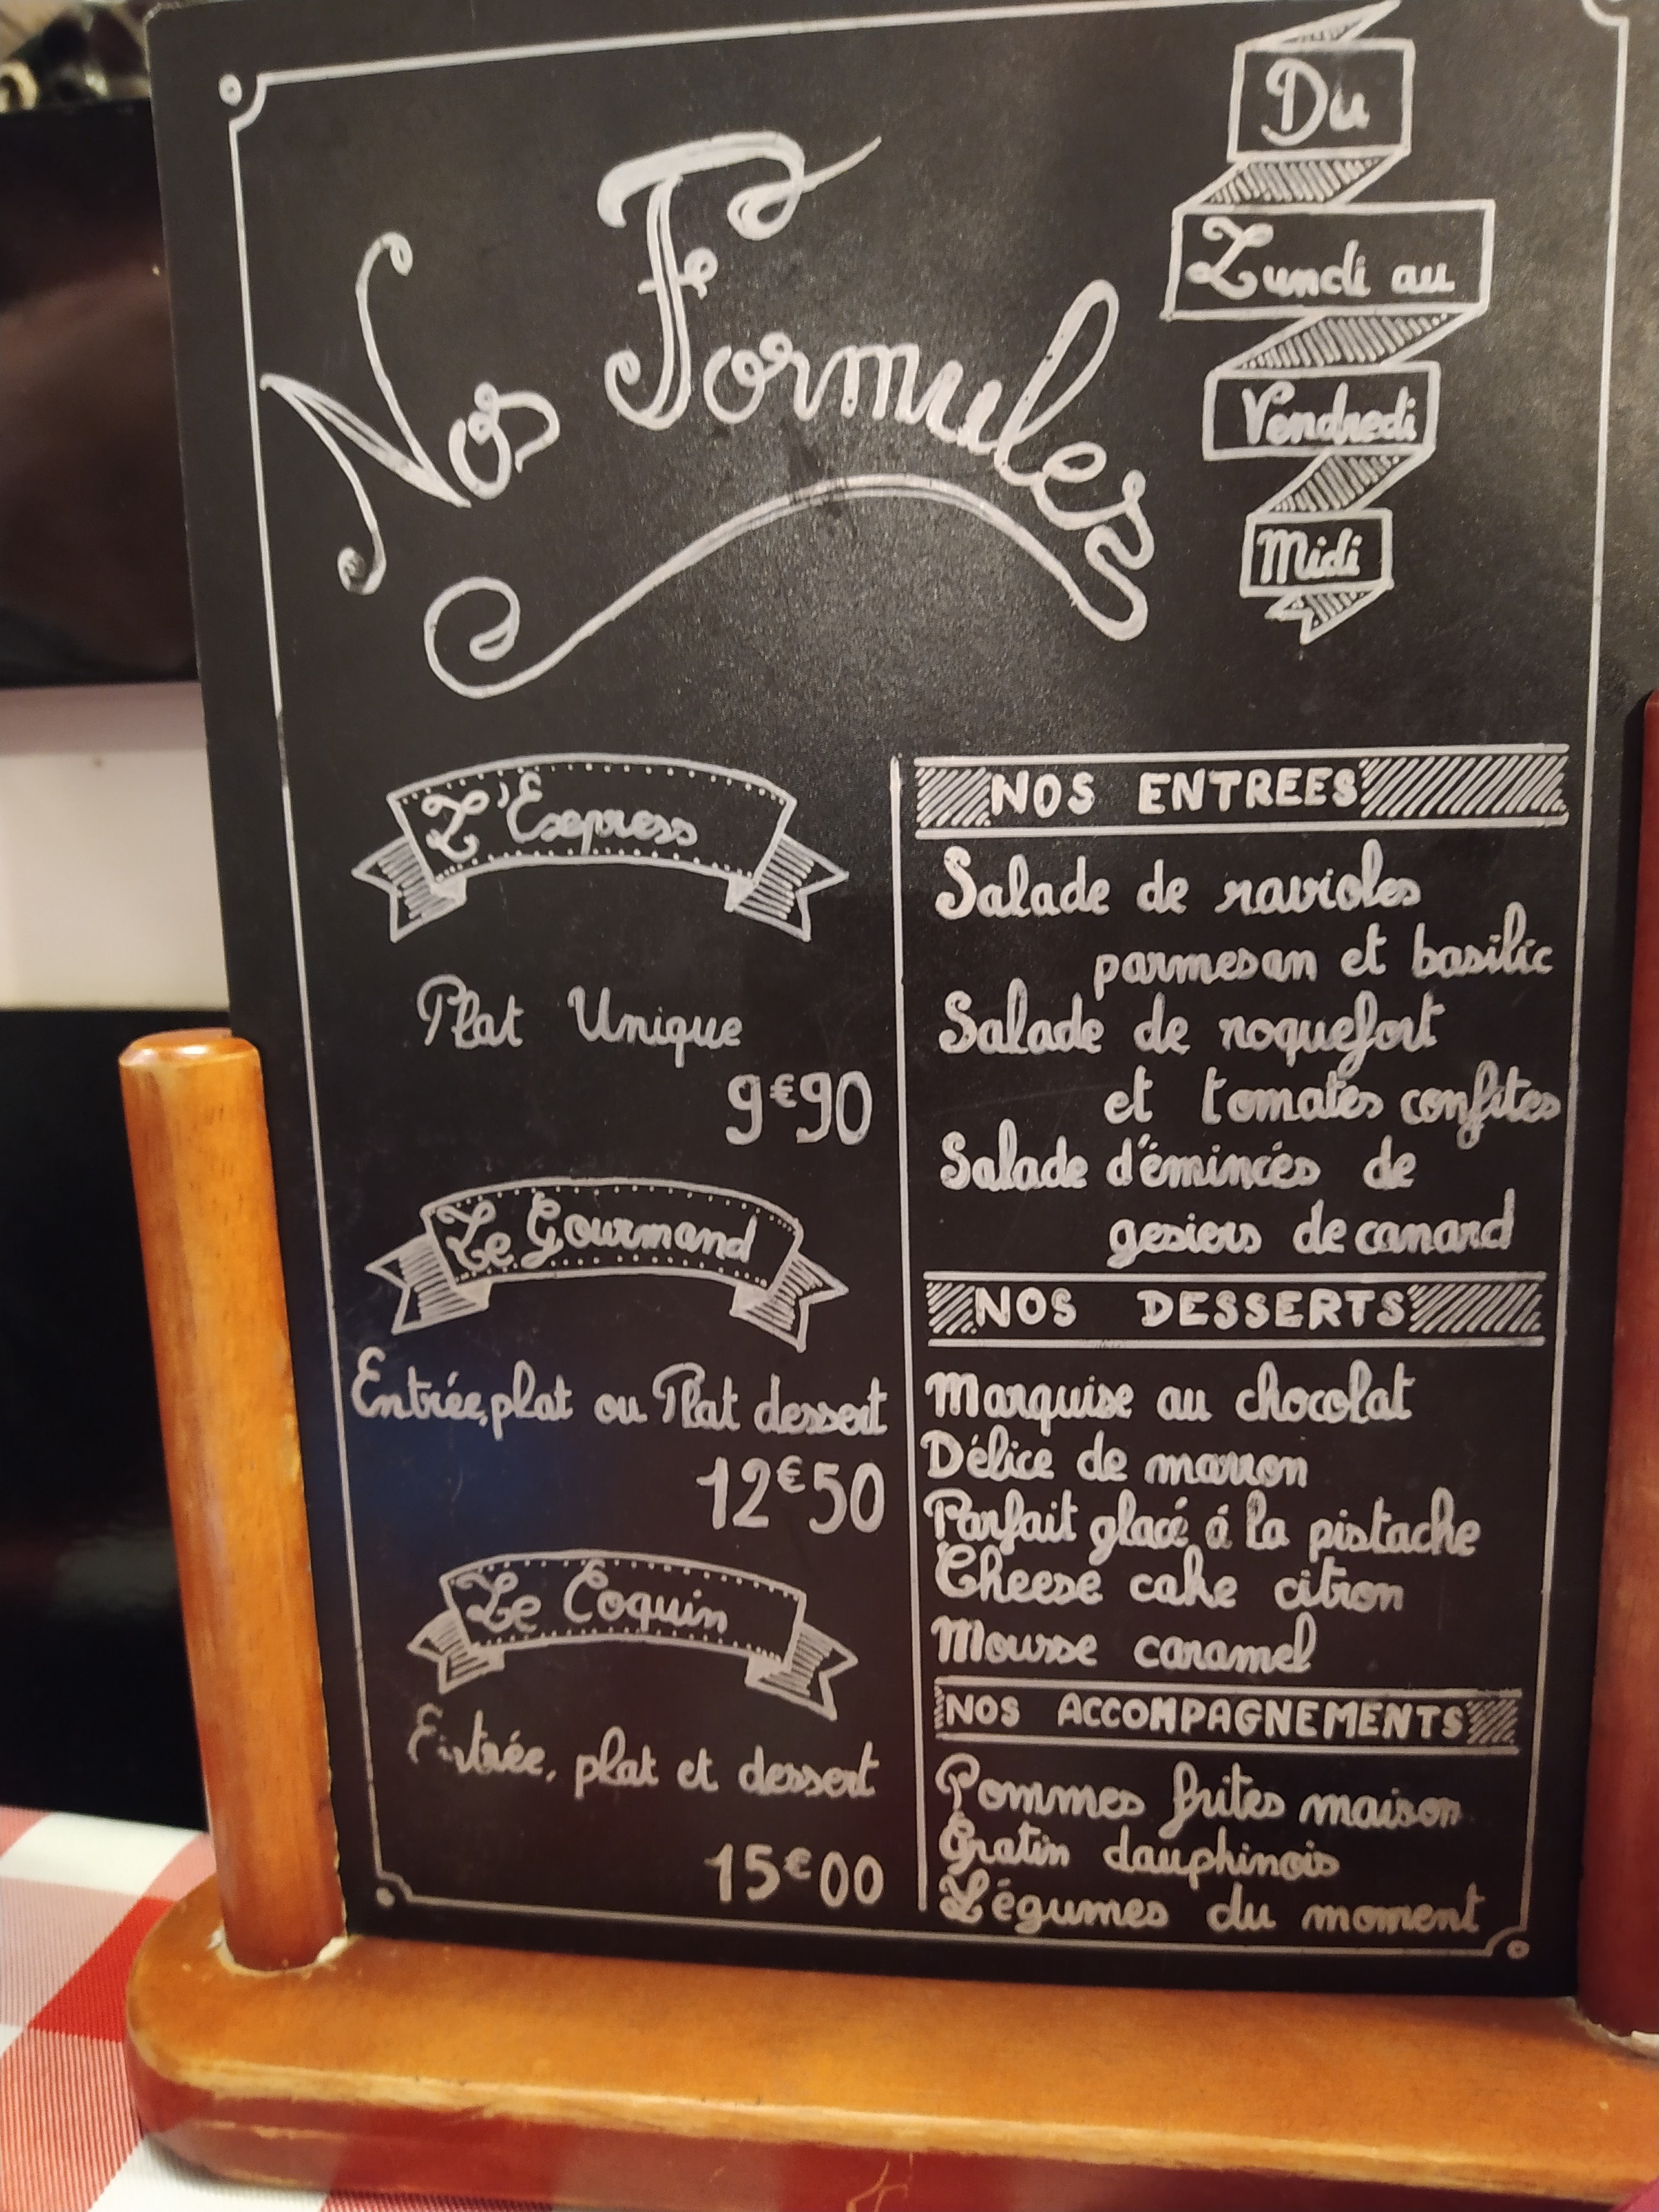 Nos Formules
Du
Lundi au
Vendredi
Midi
L'Express
Plat Unique
9€90
Le Gourmand
Entrée, plat ou Plat dessert
12€50
Le Coquin
Entrée, plat et dessert
15€00
NOS ENTREES
Salade de ravioles
parmesan et basilic
Salade de roquefort
et tomates confites
Salade d'émincés de
gesiers de canard
NOS DESSERTS
Marquise au chocolat
Délice de marron
Parfait glacé á la pistache
Cheese cake citron
Mousse caramel
NOS ACCOMPAGNEMENTS
Pommes frites maison
Gratin dauphinois
Légumes du moment